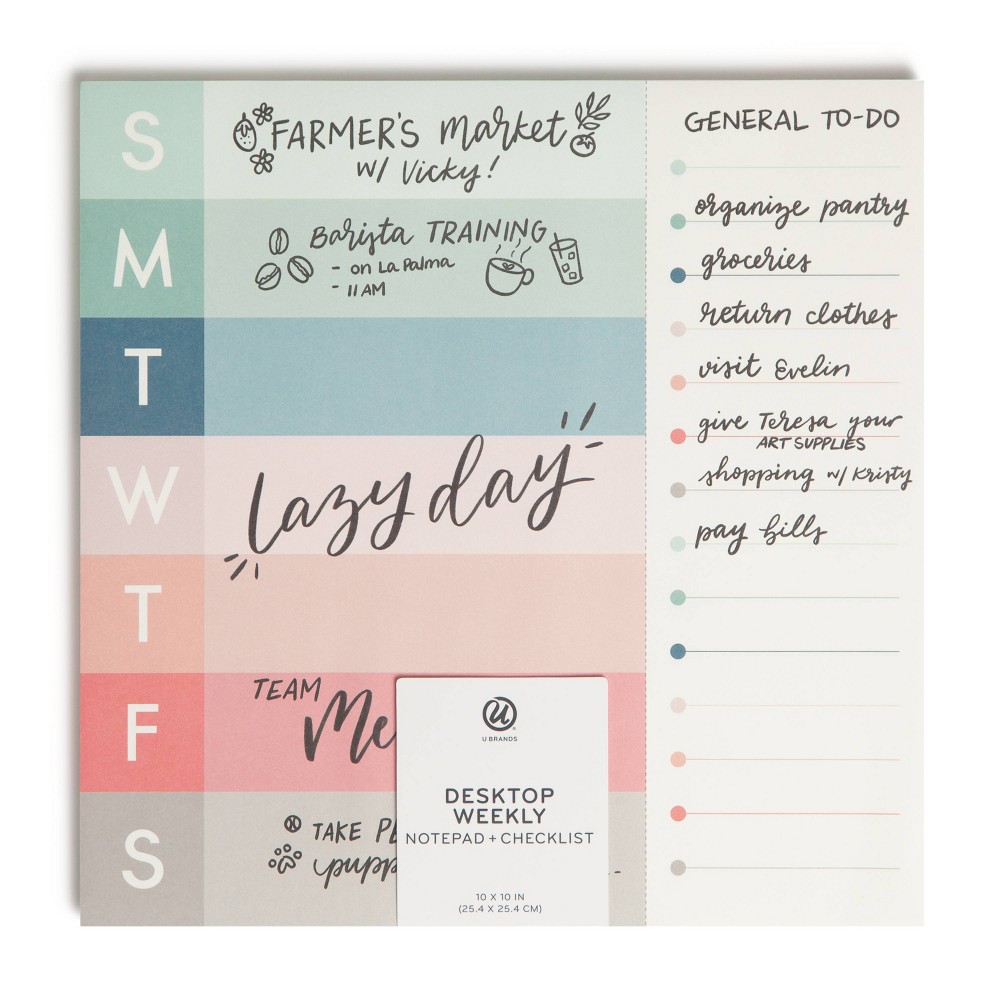 S
FARMER'S market
w/ Vicky!
M
Barista TRAINING
- on La Palma
- 11 AM
T
W
lazy day
T
F
TEAM
S
TAKE
GENERAL TO-DO
organize pantry
groceries
return clothes
visit Evelin
give Teresa your
ART SUPPLIES
shopping w/ Kristy
pay bills
U
U.BRANDS
DESKTOP
WEEKLY
NOTEPAD + CHECKLIST
10 X 10 IN
(25.4 X 25.4 CM)